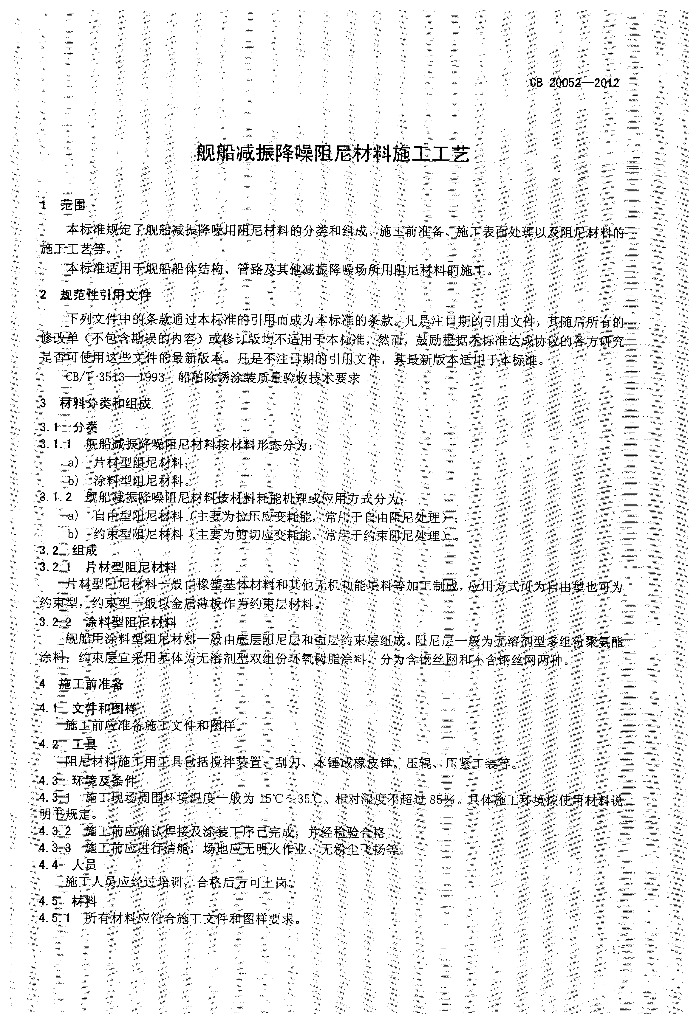 CB 20052—2012
舰船减振降噪阻尼材料施工工艺
1 范围
本标准规定了舰船减振降噪用阻尼材料的分类和组成、施工前准备、施工表面处理以及阻尼材料的
施工工艺等。
本标准适用于舰船船体结构、管路及其他减振降噪场所用阻尼材料的施工。
2 规范性引用文件
下列文件中的条款通过本标准的引用而成为本标准的条款。凡是注日期的引用文件，其随后所有的
修改单（不包含勘误的内容）或修订版均不适用于本标准，然而，鼓励根据本标准达成协议的各方研究
是否可使用这些文件的最新版本。凡是不注日期的引用文件，其最新版本适用于本标准。
CB/T 3513—1993 船舶除锈涂装质量验收技术要求
3 材料分类和组成
3.1 分类
3.1.1 舰船减振降噪阻尼材料按材料形态分为：
a) 片材型阻尼材料；
b) 涂料型阻尼材料。
3.1.2 舰船减振降噪阻尼材料按材料耗能机理或应用方式分为：
a) 自由型阻尼材料（主要为拉压应变耗能，常用于自由阻尼处理）；
b) 约束型阻尼材料（主要为剪切应变耗能，常用于约束阻尼处理）。
3.2 组成
3.2.1 片材型阻尼材料
片材型阻尼材料一般由橡塑基体材料和其他无机功能填料等加工制成，应用方式可为自由型也可为
约束型，约束型一般以金属薄板作为约束层材料。
3.2.2 涂料型阻尼材料
舰船用涂料型阻尼材料一般由底层阻尼层和面层约束层组成。阻尼层一般为无溶剂型多组份聚氨酯
涂料；约束层宜采用基体为无溶剂型双组份环氧树脂涂料，分为含钢丝网和不含钢丝网两种。
4 施工前准备
4.1 文件和图样
施工前应准备施工文件和图样。
4.2 工具
阻尼材料施工用工具包括搅拌装置、刮刀、木锤或橡皮锤、压辊、压紧工装等。
4.3 环境及条件
4.3.1 施工现场周围环境温度一般为 15℃～35℃，相对湿度不超过 85%。具体施工环境按使用材料说
明书规定。
4.3.2 施工前应确认焊接及涂装工序已完成，并经检验合格。
4.3.3 施工前应进行清舱，场地应无明火作业、无粉尘飞扬等。
4.4 人员
施工人员应经过培训，合格后方可上岗。
4.5 材料
4.5.1 所有材料应符合施工文件和图样要求。